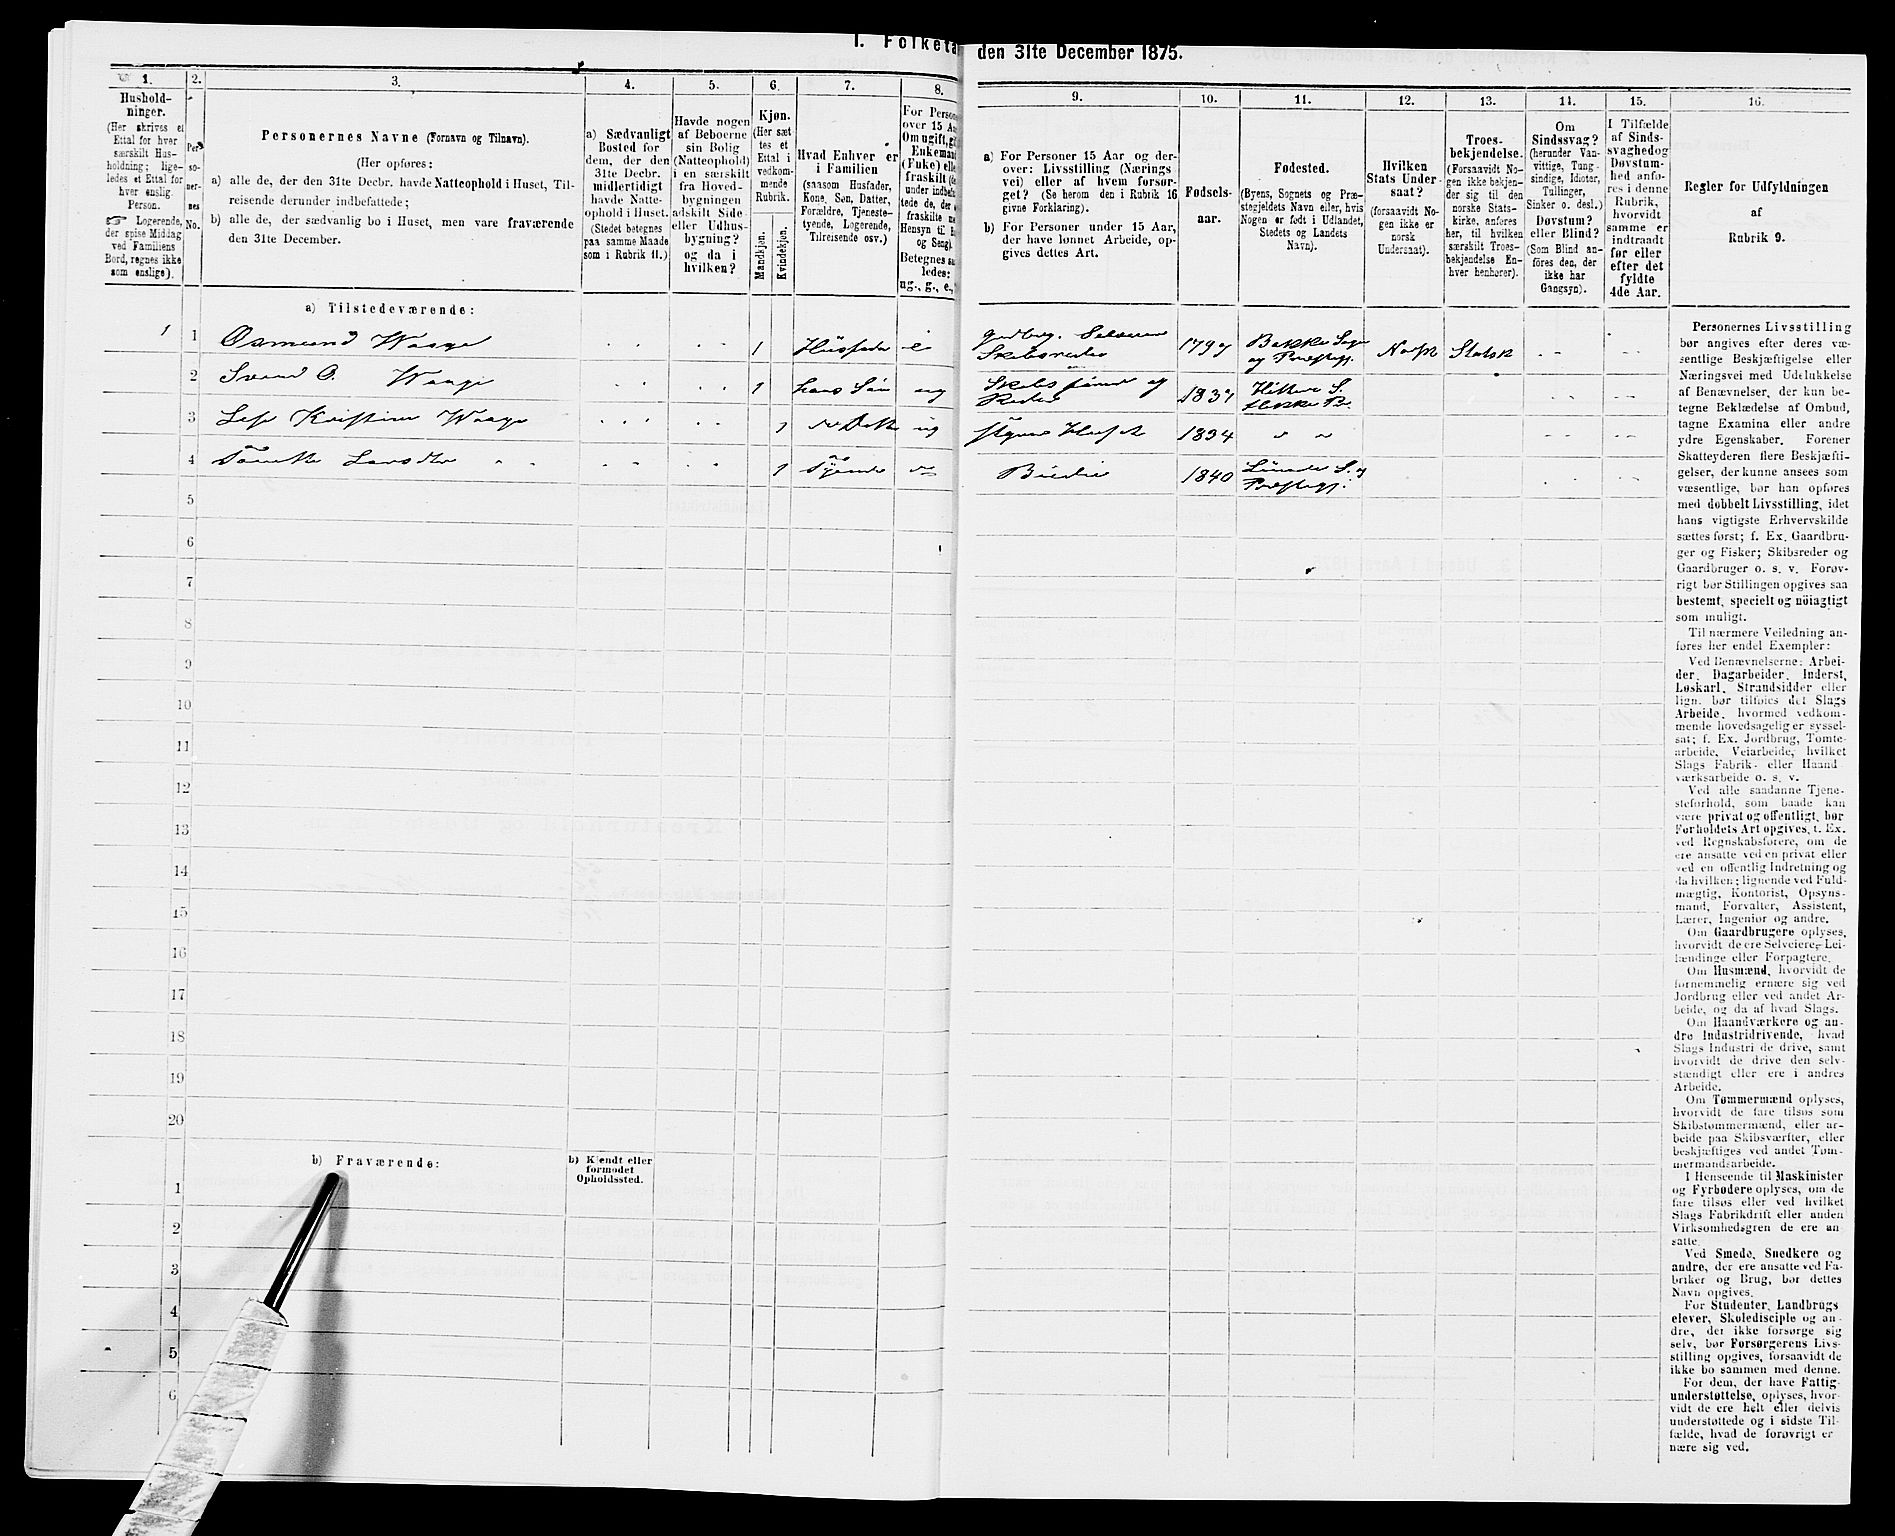 I. Folketæ
den 31te December 1875.
1.
2.
3.
4.
5.
6.
7.
8.
9.
10.
11.
12.
13.
14.
15.
16.
Hushold-
ninger.
(Her skrives et
Ettal for hver
særskilt Hus-
holdning; lige-
ledes et Ettal for
hver enslig
Person.
☞ Logerende,
der spise Middag
ved Familiens
Bord, regnes ikke
som enslige).
Per
so-
ner-
nes
No.
Personernes Navne (Fornavn og Tilnavn).
(Her opføres:
a) alle de, der den 31te Decbr. havde Natteophold i Huset, Til-
reisende derunder indbefattede;
b) alle de, der sædvanlig bo i Huset, men vare fraværende
den 31te December.
a) Sædvanligt
Bosted for
dem, der den
31te Decbr.
midlertidigt
havde Natte-
ophold i Huset.
(Stedet betegnes
paa samme Maade
som i Rubrik 11.)
Havde nogen
af Beboerne
sin Bolig
(Natteophold)
i en særskilt
fra Hoved-
bygningen
adskilt Side-
eller Udhus-
bygning?
og da i
hvilken?
Kjøn.
(Her sæt
tes et
Ettal i
vedkom-
mende
Rubrik.
Mandkjøn.
Kvindekjøn.
Hvad Enhver er
i Familien
(saasom Husfader,
Kone, Søn, Datter,
Forældre, Tjeneste-
tyende, Logerende,
Tilreisende osv.)
For Perso
over 15 Aa
Om ugift, gi
Enkeman
(Fuke) elle
fraskilt (de
under indbef
tede de, der
fraskilte
Hensyn til
og Seng).
Betegnes sa
ledes:
ug., g., e.,
a) For Personer 15 Aar og der-
over: Livsstilling (Nærings
vei) eller af hvem forsør-
get? (Se herom den i Rubrik 16
givne Forklaring).
b) For Personer under 15 Aar,
der have lønnet Arbeide, op-
gives dettes Art.
Fødsels-
aar.
Fødested.
(Byens, Sognets og Præ-
stegjeldets Navn eller, hvis
Nogen er født i Udlandet,
Stedets og Landets
Navn).
Hvilken
Stats Under-
saat?
(forsaavidt No-
gen ikke er
norsk
Undersaat).
Troes-
bekjendelse.
(Forsaavidt No-
gen ikke bekjen-
der sig til den
norske Stats-
kirke, anføres
her, til hvilken
særskilt Troes-
bekjendelse En-
hver henhører).
Om
Sindssvag?
(herunder Van-
vittige, Tung-
sindige, Idioter,
Tullinger,
Sinker o. desl.)
Døvstum?
eller Blind?
(Som Blind an-
føres den, der
ikke har
Gangsyn).
I Tilfælde
af Sinds-
svaghed og
Døvstum-
hed anfø-
res i denne
Rubrik,
hvorvidt
samme er
indtraadt
før eller
efter det
fyldte
4de Aar.
Regler for Udfyldningen
af
Rubrik 9.
a) Tilstedeværende:
1 1 Osmund Waage 1 Husfader e Selveier Skibsreder 1797 Bakke Sogn og Præstegj. Norsk Statsk
2 Svend O. Waage 1 hans Søn ug Skibsfører og Reder 1837 Hitterø S.
3 Kristine Waage 1 ug 1834 " "
4 Larsdtr 1 Tyende 1840 S. og Præstegj.
5
6
7
8
9
10
11
12
13
14
15
16
17
18
19
20
b) Fraværende:
b) Kjendt eller
formodet
Opholdssted.
1
2
3
4
5
6
Personernes Livsstilling
bør angives efter deres væ-
sentlige Beskjæftigelse eller
Næringsvei med Udelukkelse
af Benævnelser, der kun be-
tegne Beklædelse af Ombud,
tagne Examina eller andre
ydre Egenskaber. Forener
Skatteyderen flere Beskjæfti-
gelser, der kunne ansees som
væsentlige, bør han opføres
med dobbelt Livsstilling, idet
hans vigtigste Erhvervskilde
sættes først; f. Ex. Gaardbru-
ger og Fisker; Skibsreder og
Gaardbruger o. s. v. Forøv-
rigt bør Stillingen opgives saa
bestemt, specielt og nöiagtigt
som muligt.
Til nærmere Veiledning an-
føres her endel Exempler:
Ved Benævnelserne: Arbei-
der, Dagarbeider, Inderst,
Løskarl, Strandsidder eller
lign. bør tilføies det Slags
Arbeide, hvormed vedkom-
mende hovedsagelig er syssel-
sat; f. Ex. Jordbrug, Tomte-
arbeide, Veiarbeide, hvilket
Slags Fabrik- eller Haand
værksarbeide o. s. v.
Ved alle saadanne Tjene-
steforhold, som baade kan
være privat og offentligt, bør
Forholdets Art opgives, t. Ex.
ved Regnskabsførere, om de
ere ansatte ved en privat eller
ved en offentlig Indretning og
da hvilken; lignende ved Fuld-
mægtig, Kontorist, Opsyns-
mand, Forvalter, Assistent,
Lærer, Ingeniør og andre.
Om Gaardbrugere oplyses,
hvorvidt de ere Selveiere, Lei-
lændinge eller Forpagtere.
Om Husmænd, hvorvidt de
fornemmelig ernære sig ved
Jordbrug eller ved andet Ar-
beide, og da af hvad Slags.
Om Haandværkere og an-
dre Industridrivende, hvad
Slags Industri de drive, samt
hvorvidt de drive den selv-
stændigt eller ere i andres
Arbeide.
Om Tømmermænd oplyses,
hvorvidt de fare tilsøs som
Skibstømmermænd, eller ar-
beide paa Skibsværfter, eller
beskjæftiges ved andet Tøm-
mermandsarbeide.
I Henseende til Maskinister
og Fyrbødere oplyses, om de
fare tilsøs eller ved hvilket
Slags Fabrikdrift eller anden
Virksomhedsgren de ere an-
satte.
Ved Smede, Snedkere og
andre, der ere ansatte ved Fa-
briker og Brug, bør dettes
Navn opgives.
For Studenter, Landbrugs
elever, Skoledisciple og an-
dre, der ikke forsørge sig
selv, bør Forsørgerens Livs-
stilling opgives, forsaavidt de
ikke bo sammen med denne.
For dem, der have Fattig-
understøttelse, oplyses, hvor-
vidt de ere helt eller delvis
understøttede og i sidste Til-
fælde, hvad de forøvrigt er-
nære sig ved.